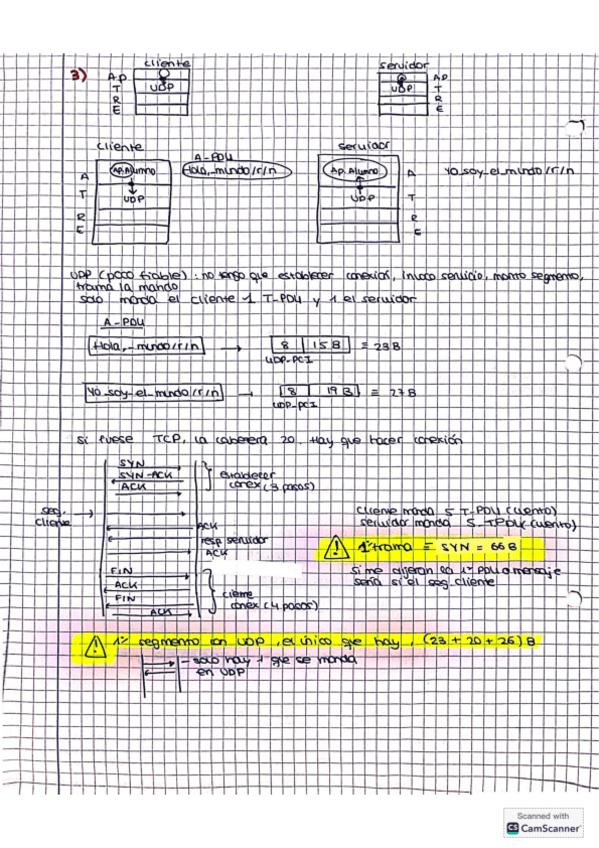 3)
cliente
servidor
Ap
T
R
E
UDP
UDP
Ap
T
R
E
cliente
servidor
A-PDU
Hola,_mundo/r/n
Ap.Alumno
Ap.Alumno
A
T
R
E
UDP
UDP
A
T
R
E
Yo soy_el_mundo/r/n
UDP (poco fiable): no tengo que establecer conexión, invoco servicio, monto segmento,
trama la mando
solo manda el cliente 1 T-PDU y 1 el servidor
A-PDU
Hola,_mundo/r/n → 8 15B ≡ 23B
UDP-PCI
Yo_soy_el_mundo/r/n → 8 19B ≡ 27B
UDP-PCI
Si fuese TCP, la cabecera 20. Hay que hacer conexión
SYN
SYN-ACK
ACK
establecer
conex (3 pasos)
seg.
cliente
ACK
resp servidor
ACK
FIN
ACK
FIN
ACK
cierre
conex (4 pasos)
cliente manda 5 T-PDU (cuento)
servidor manda 5-TPDU (cuento)
1ª trama = SYN = 66B
si me dijeran la 1ª PDU o mensaje
sería si el seg.cliente
1º segmento con UDP, el único que hay, (23+20+26)B
- solo hay 1 que se manda
en UDP
Scanned with
CS CamScanner